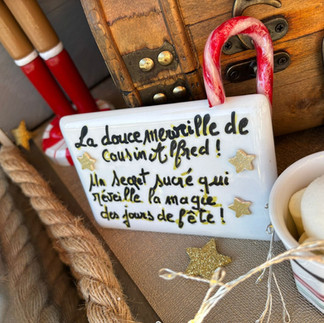 La douce merveille de
cousin Alfred !
Un secret sucré qui
réveille la magie
des jours de fête !